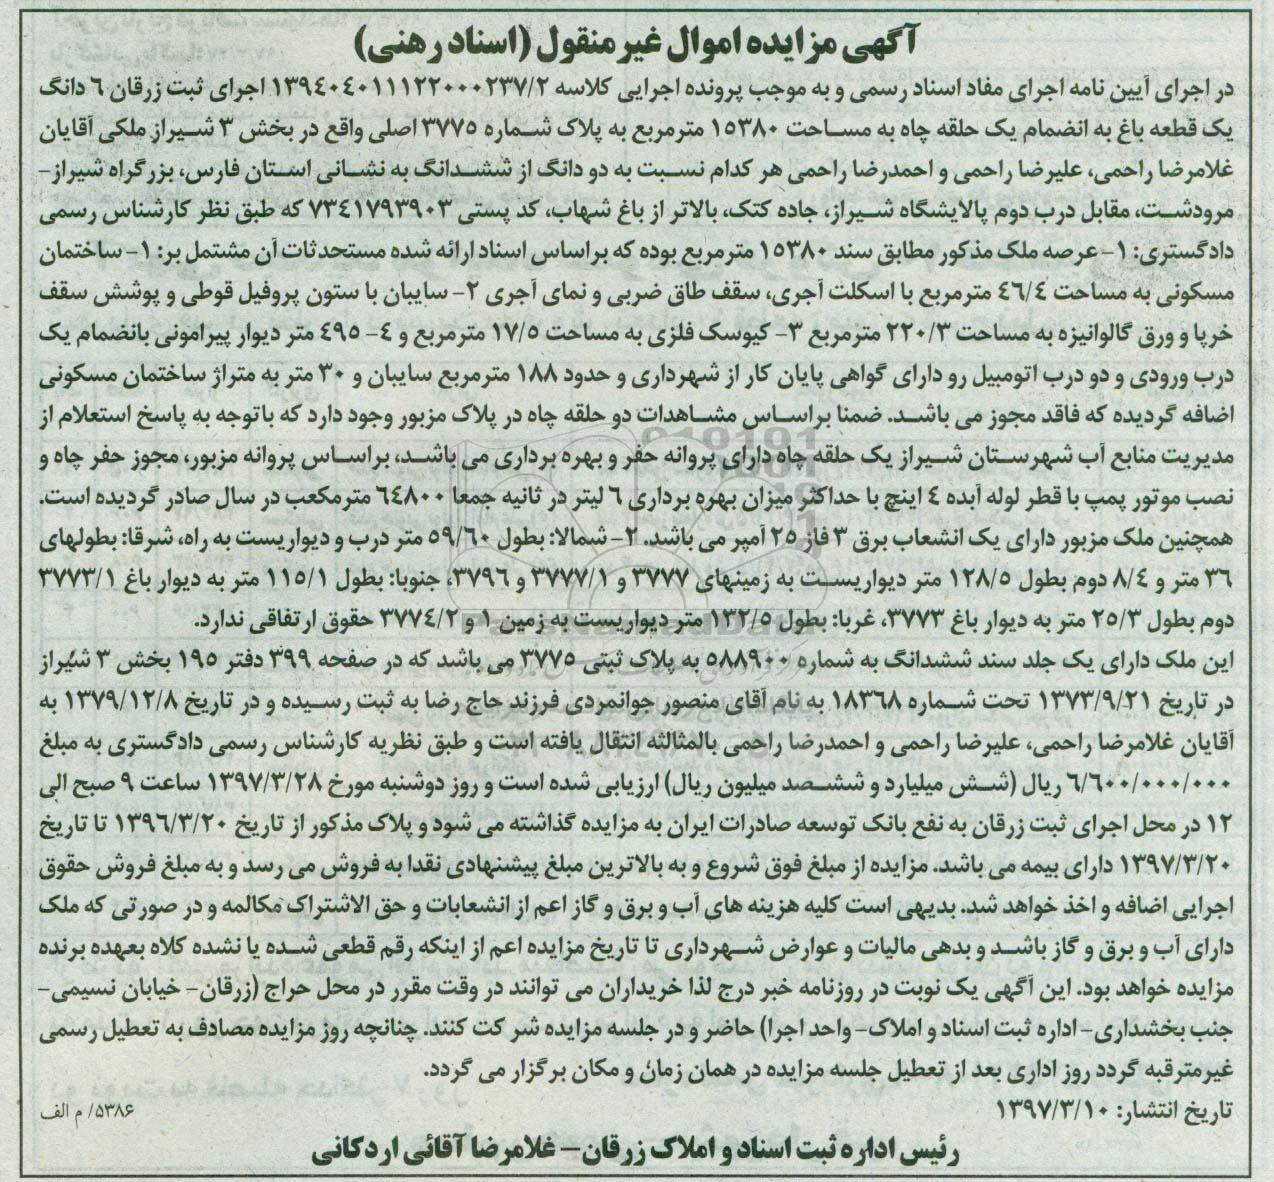 آگهی مزایده اموال غیر منقول (اسناد رهنی)
در اجرای آیین نامه اجرای مفاد اسناد رسمی و به موجب پرونده اجرایی کلاسه ۱۳۹۴۰۴۰۱۱۱۲۲۰۰۰۲۳۷/۲ اجرای ثبت زرقان ۶ دانگ
یک قطعه باغ به انضمام یک حلقه چاه به مساحت ۱۵۳۸۰ مترمربع به پلاک شماره ۳۷۷۵ اصلی واقع در بخش ۳ شیراز ملکی آقایان
غلامرضا راحمی، علیرضا راحمی و احمدرضا راحمی هر کدام نسبت به دو دانگ از ششدانگ به نشانی استان فارس، بزرگراه شیراز-
مرودشت، مقابل درب دوم پالایشگاه شیراز، جاده کتک، بالاتر از باغ شهاب، کد پستی ۷۳۴۱۷۹۳۹۰۳ که طبق نظر کارشناس رسمی
دادگستری: ۱- عرصه ملک مذکور مطابق سند ۱۵۳۸۰ مترمربع بوده که براساس اسناد ارائه شده مستحدثات آن مشتمل بر: ۱- ساختمان
مسکونی به مساحت ۴۶/۴ مترمربع با اسکلت آجری، سقف طاق ضربی و نمای آجری ۲- سایبان با ستون پروفیل قوطی و پوشش سقف
خرپا و ورق گالوانیزه به مساحت ۲۲۰/۳ مترمربع ۳- کیوسک فلزی به مساحت ۱۷/۵ مترمربع و ۴- ۴۹۵ متر دیوار پیرامونی بانضمام یک
درب ورودی و دو درب اتومبیل رو دارای گواهی پایان کار از شهرداری و حدود ۱۸۸ مترمربع سایبان و ۳۰ متر به متراژ ساختمان مسکونی
اضافه گردیده که فاقد مجوز می باشد. ضمنا براساس مشاهدات دو حلقه چاه در پلاک مزبور وجود دارد که باتوجه به پاسخ استعلام از
مدیریت منابع آب شهرستان شیراز یک حلقه چاه دارای پروانه حفر و بهره برداری می باشد، براساس پروانه مزبور، مجوز حفر چاه و
نصب موتور پمپ با قطر لوله آبده ۴ اینچ با حداکثر میزان بهره برداری ۶ لیتر در ثانیه جمعا ۶۴۸۰۰ مترمکعب در سال صادر گردیده است.
همچنین ملک مزبور دارای یک انشعاب برق ۳ فاز ۲۵ آمپر می باشد. ۲- شمالا: بطول ۵۹/۶۰ متر درب و دیواریست به راه، شرقا: بطولهای
۳۶ متر و ۸/۴ دوم بطول ۱۲۸/۵ متر دیواریست به زمینهای ۳۷۷۷ و ۳۷۷۷/۱ و ۳۷۹۶، جنوبا: بطول ۱۱۵/۱ متر به دیوار باغ ۳۷۷۳/۱
دوم بطول ۲۵/۳ متر به دیوار باغ ۳۷۷۳، غربا: بطول ۱۳۲/۵ متر دیواریست به زمین ۱ و ۳۷۷۴/۲ حقوق ارتفاقی ندارد.
این ملک دارای یک جلد سند ششدانگ به شماره ۵۸۸۹۰۰ به پلاک ثبتی ۳۷۷۵ می باشد که در صفحه ۳۹۹ دفتر ۱۹۵ بخش ۳ شیراز
در تاریخ ۱۳۷۳/۹/۲۱ تحت شماره ۱۸۳۶۸ به نام آقای منصور جوانمردی فرزند حاج رضا به ثبت رسیده و در تاریخ ۱۳۷۹/۱۲/۸ به
آقایان غلامرضا راحمی، علیرضا راحمی و احمدرضا راحمی بالمثالثه انتقال یافته است و طبق نظریه کارشناس رسمی دادگستری به مبلغ
۶/۶۰۰/۰۰۰/۰۰۰ ریال (شش میلیارد و ششصد میلیون ریال) ارزیابی شده است و روز دوشنبه مورخ ۱۳۹۷/۳/۲۸ ساعت ۹ صبح الی
۱۲ در محل اجرای ثبت زرقان به نفع بانک توسعه صادرات ایران به مزایده گذاشته می شود و پلاک مذکور از تاریخ ۱۳۹۶/۳/۲۰ تا تاریخ
۱۳۹۷/۳/۲۰ دارای بیمه می باشد. مزایده از مبلغ فوق شروع و به بالاترین مبلغ پیشنهادی نقدا به فروش می رسد و به مبلغ فروش حقوق
اجرایی اضافه و اخذ خواهد شد. بدیهی است کلیه هزینه های آب و برق و گاز اعم از انشعابات و حق الاشتراک مکالمه و در صورتی که ملک
دارای آب و برق و گاز باشد و بدهی مالیات و عوارض شهرداری تا تاریخ مزایده اعم از اینکه رقم قطعی شده یا نشده کلاه بعهده برنده
مزایده خواهد بود. این آگهی یک نوبت در روزنامه خبر درج لذا خریداران می توانند در وقت مقرر در محل حراج (زرقان- خیابان نسیمی-
جنب بخشداری- اداره ثبت اسناد و املاک- واحد اجرا) حاضر و در جلسه مزایده شرکت کنند. چنانچه روز مزایده مصادف به تعطیل رسمی
غیرمترقبه گردد روز اداری بعد از تعطیل جلسه مزایده در همان زمان و مکان برگزار می گردد.
تاریخ انتشار: ۱۳۹۷/۳/۱۰
۵۳۸۶/ م الف
رئیس اداره ثبت اسناد و املاک زرقان- غلامرضا آقائی اردکانی